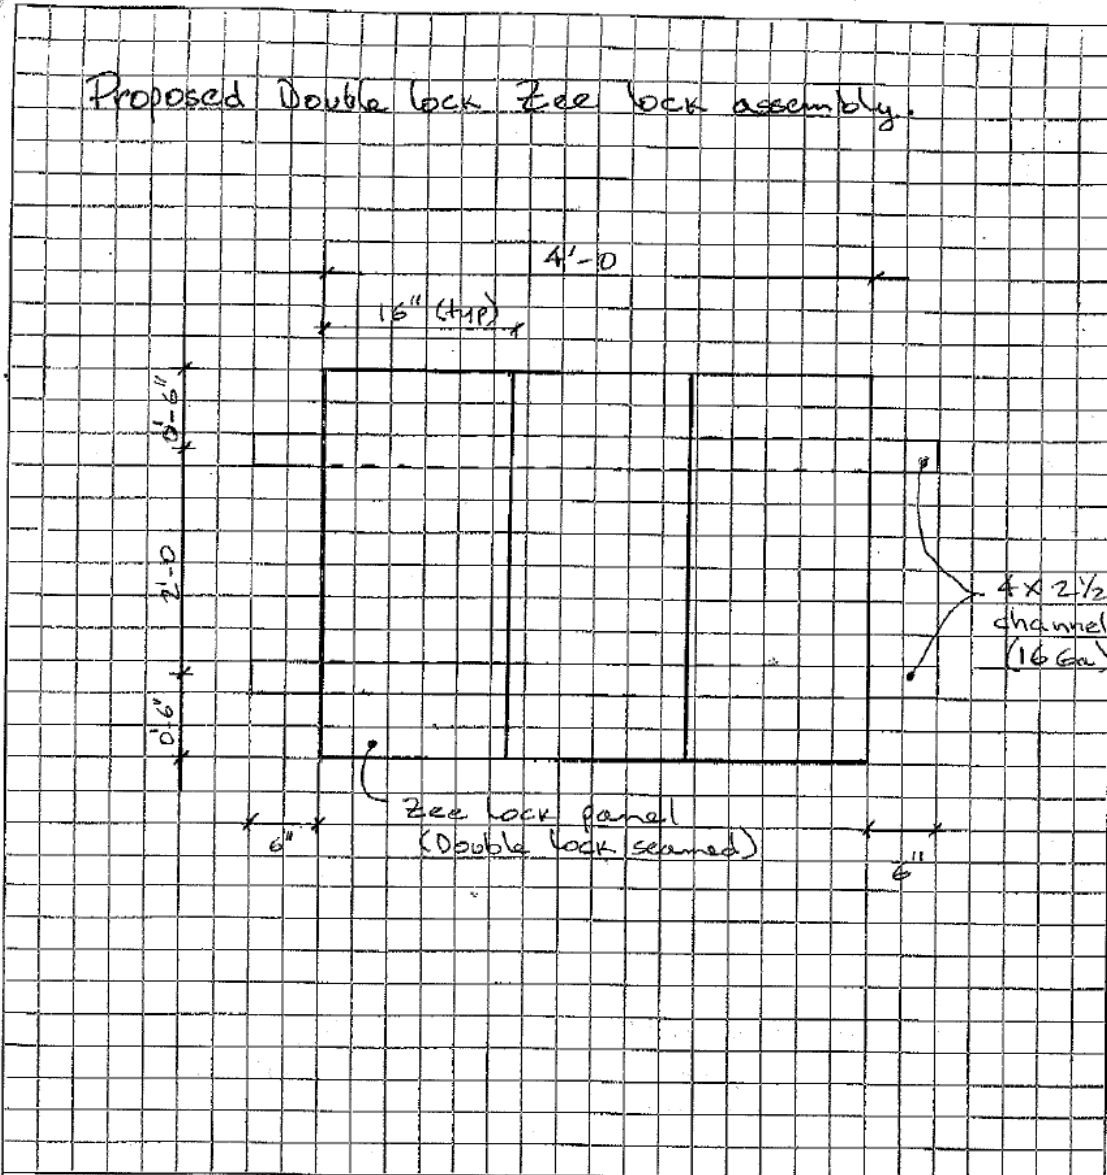 Proposed Double lock Zee lock assembly.
4'-0
16" (typ)
0'-6"
2'-0
0'-6"
4 x 2 1/2
channel
(16 Ga)
Zee lock panel
(Double lock seamed)
6"
6"